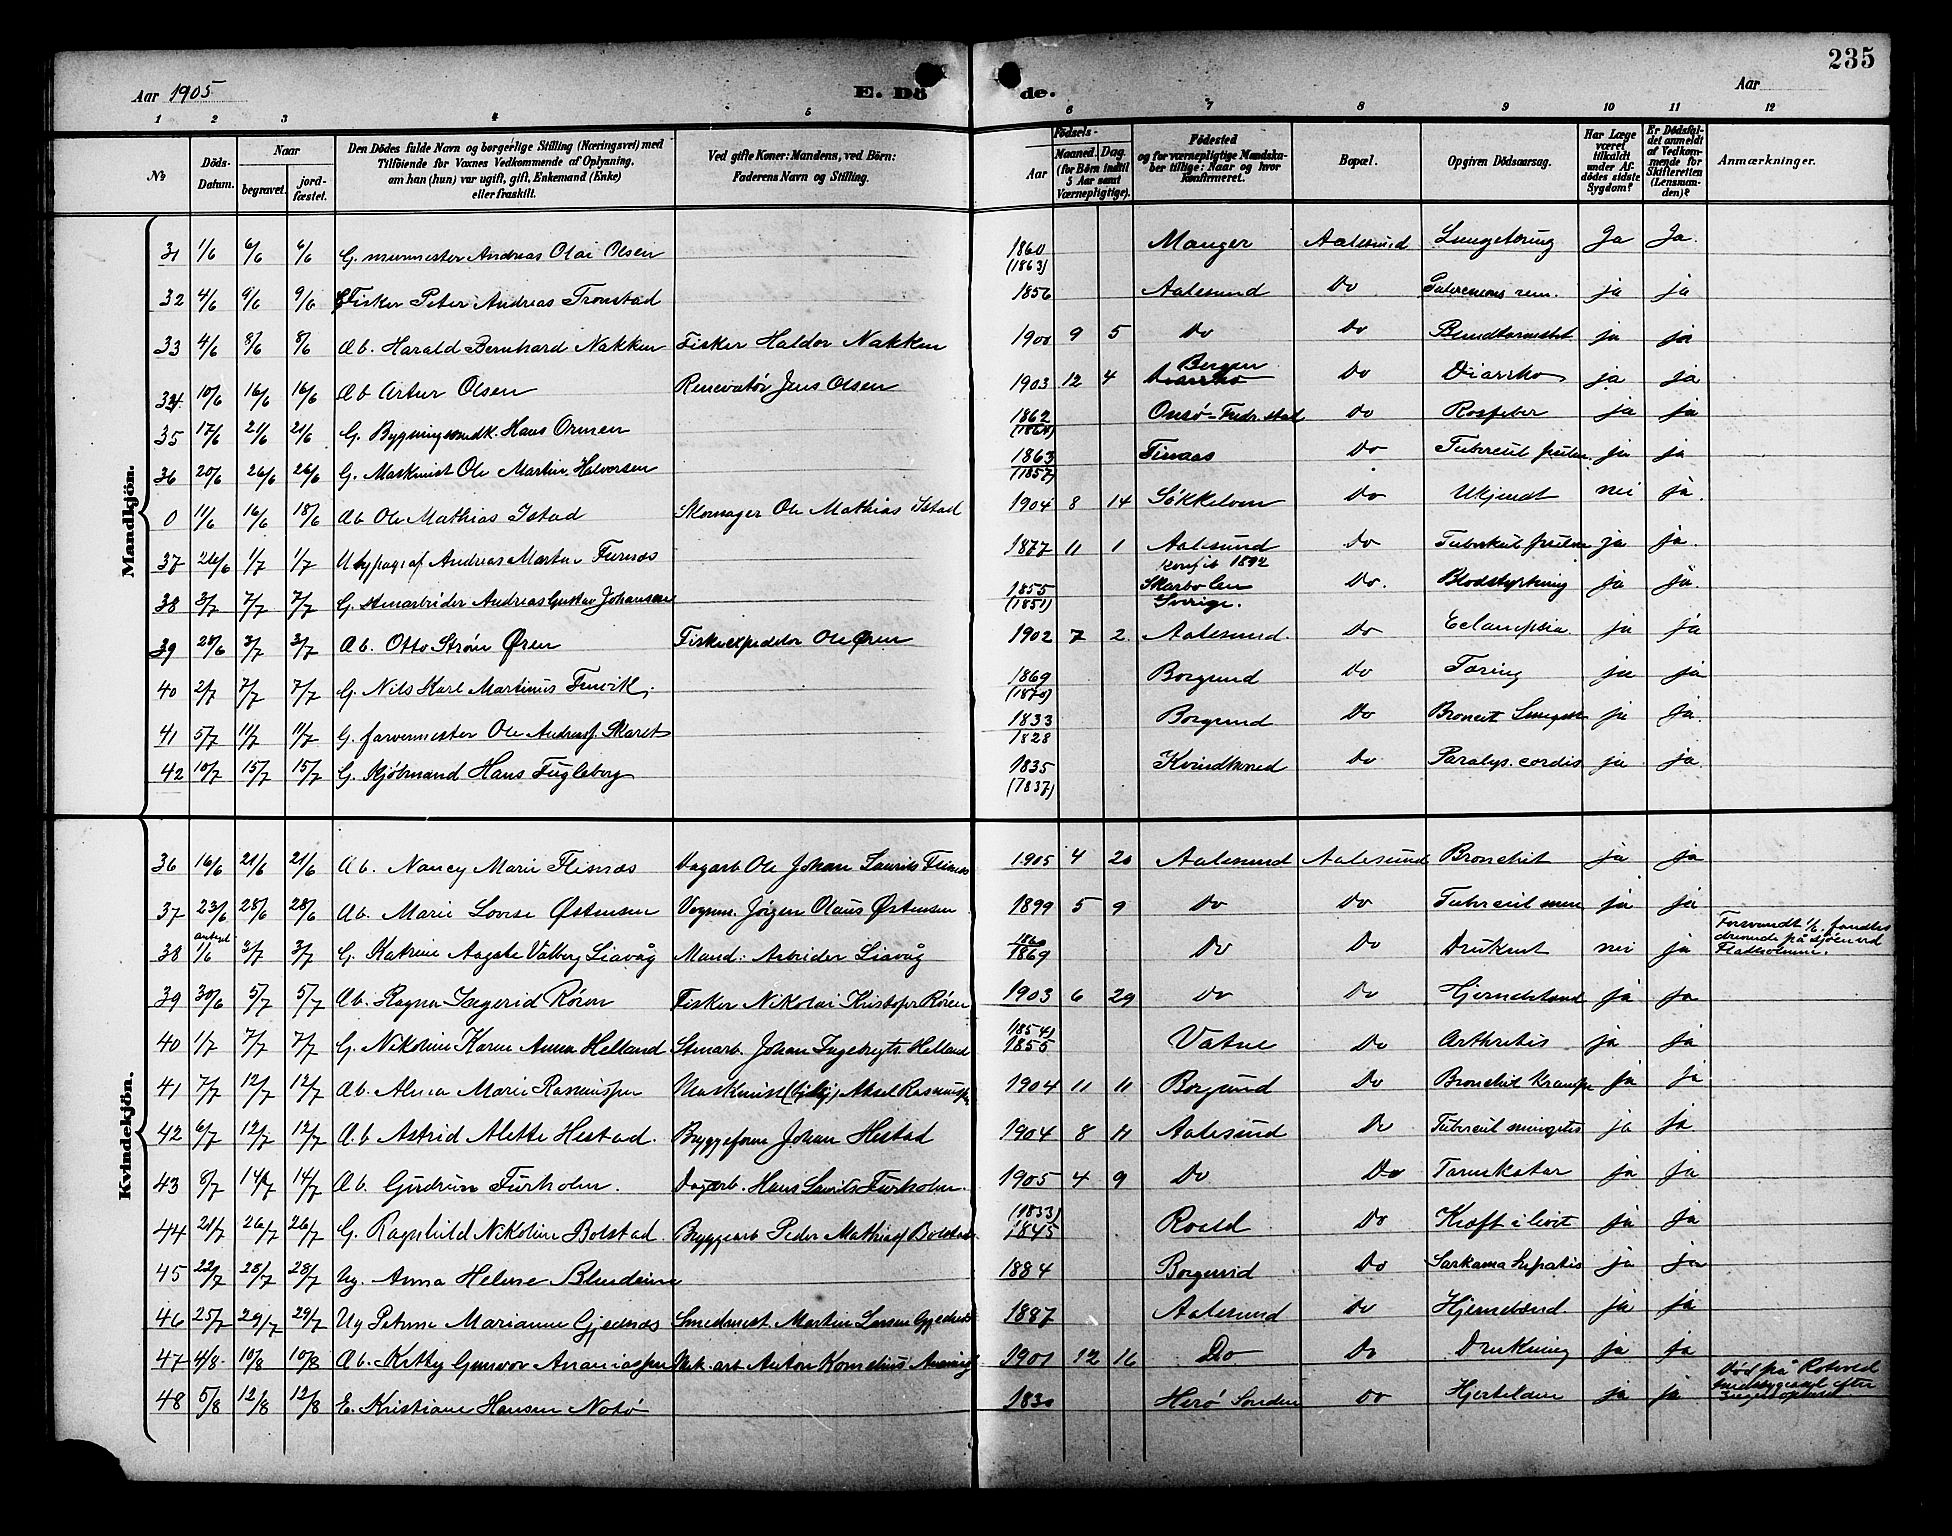 235
Aar 1905
E. Dö de.
Aar
1 2 3 4 5 6 7 8 9 10 11 12
No
Döds-Datum.
Naar
begravet.
jord-fæstet.
Den Dödes fulde Navn og borgerlige Stilling (Næringsvei) med
Tilföiende for Voxnes Vedkommende af Oplysning,
om han (hun) var ugift, gift, Enkemand (Enke)
eller fraskilt.
Ved gifte Koner: Mandens, ved Børn:
Faderens Navn og Stilling.
Födsels-
Aar
Maaned. Dag.
(for Børn indtil
5 Aar samt
Værnepligtige).
Födested
og for værnepligtige Mandska-
ber tillige: Naar og hvor
konfirmeret.
Bopæl.
Opgiven Dödsaarsag.
Har Læge
været
tilkaldt
under Af-
dödes sidste
Sygdom?
Er Dödsfal-
det anmeldt
af Vedkom-
mende for
Skifteretten
(Lensman-
den)?
Anmærkninger.
Mandkjön.
31 1/6 6/6 6/6 G. murmester Andreas Olai Olsen 1860 (1863) Manger Aalesund Lungetæring Ja Ja.
32 4/6 9/6 9/6 G Fisker Peter Andreas Tronstad 1856 Aalesund Do ja ja
33 4/6 8/6 8/6 Ab. Harald Bernhard Nakken Fisker Haldor Nakken 1900 9 5 Do Do ja ja
34 10/6 16/6 16/6 Ab Artur Olsen Renovatör Jens Olsen 1903 12 4 Bergen Do Diarrho ja ja
35 17/6 21/6 21/6 G. Hans Ormen 1862 Onsö-Fredr.stad Do ja ja
36 20/6 26/6 26/6 G. Maskinist Ole Martin Halvorsen 1863 (1857) Finaas Do ja ja
0 11/6 16/6 18/6 Ab Ole Mathias Istad Skomager Ole Mathias Istad 1904 8 14 Søkkelven Do Ukjendt nei ja.
37 26/6 1/7 1/7 U typograf Andreas Martin Furnæs 1877 11 1 Aalesund 1892 Do ja ja.
38 3/7 7/7 7/7 G. stenarbider Andreas Gustav Johansen 1855 (1851) Sverige. Do. Blodstyrtning ja ja.
39 28/6 3/7 3/7 Ab. Otto Strøm Øren Fiskeexpeditor Ole Øren 1902 7 2 Aalesund. Do Eclampsia. ja ja
40 2/7 7/7 7/7 G. Nils Karl Martinus 1869 (1870) Borgund Do Tæring ja ja
41 5/7 11/7 11/7 G. farvermester Ole Andreas Skaret 1833 1828 Borgund Do ja ja.
42 10/7 15/7 15/7 G. Kjöbmand Hans Fugleberg 1835 (1837) Kvindherred Do Paralys. cordis ja ja
Kvindekjön.
36 16/6 21/6 21/6 Ab. Nancy Marie Flisnæs Dagarb Ole Johan Laurits Flisnæs 1905 4 20 Aalesund Aalesund Bronchit ja ja
37 23/6 28/6 28/6 Ab. Marie Lovise Østensen Vognm. Jörgen Olaus Østensen 1899 5 9 Do Do ja ja
38 1/6 3/7 3/7 G. Katrine Aagate Valborg Liavåg Mand: Arbeider Liavåg 1860 1869 Do Do Druknet nei ja Forsvundt 1/6. fandtes
drivende på sjöen ved
Flatholmen.
39 30/6 5/7 5/7 Ab. Ragna Ingerid Rören Fisker Nikolai Kristofer Rören 1903 6 29 Do Do ja ja
40 1/7 7/7 7/7 G. Nikoline Karen Anna Helland Stenarb. Johan Ingebrigts. Helland (1854) 1855 Vatne Do Arthritis ja ja
41 7/7 12/7 12/7 Ab Marie Rasmussen Maskinist Aksel Rasmussen 1904 11 11 Borgund Do Bronchit Krampe ja ja
42 6/7 12/7 12/7 A.b Astrid Alette Hestad. Johan Hestad 1904 8 11 Aalesund Do ja ja.
43 8/7 14/7 14/7 Ab. Gudrun Furholm. Dagarb. Hans Furholm. 1905 4 9 Do Do Tarmkatar ja ja
44 21/7 26/7 26/7 G. Ragnhild Nikoline Bolstad. Bryggearb Peder Mathias Bolstad (1833) 1845 Roald Do Kræft i livet ja ja
45 22/7 28/7 28/7 Ug. Anna Helene 1884 Borgund Do ja ja
46 25/7 29/7 29/7 Ug Petrine Marianne Gjednæs Smedmest. Martin Larsen Gjednæs 1887 Aalesund Do Hjernebænd. ja ja
47 4/8. 10/8 10/8 Ab. Kitty Gunvor Ananiassen arb Anton Kornelius 1901 12 16 Do Do Drukning ja ja
48 5/8 12/8 12/8 E. Kristiane Hansen Notö 1830 Herö Do ja ja Död på